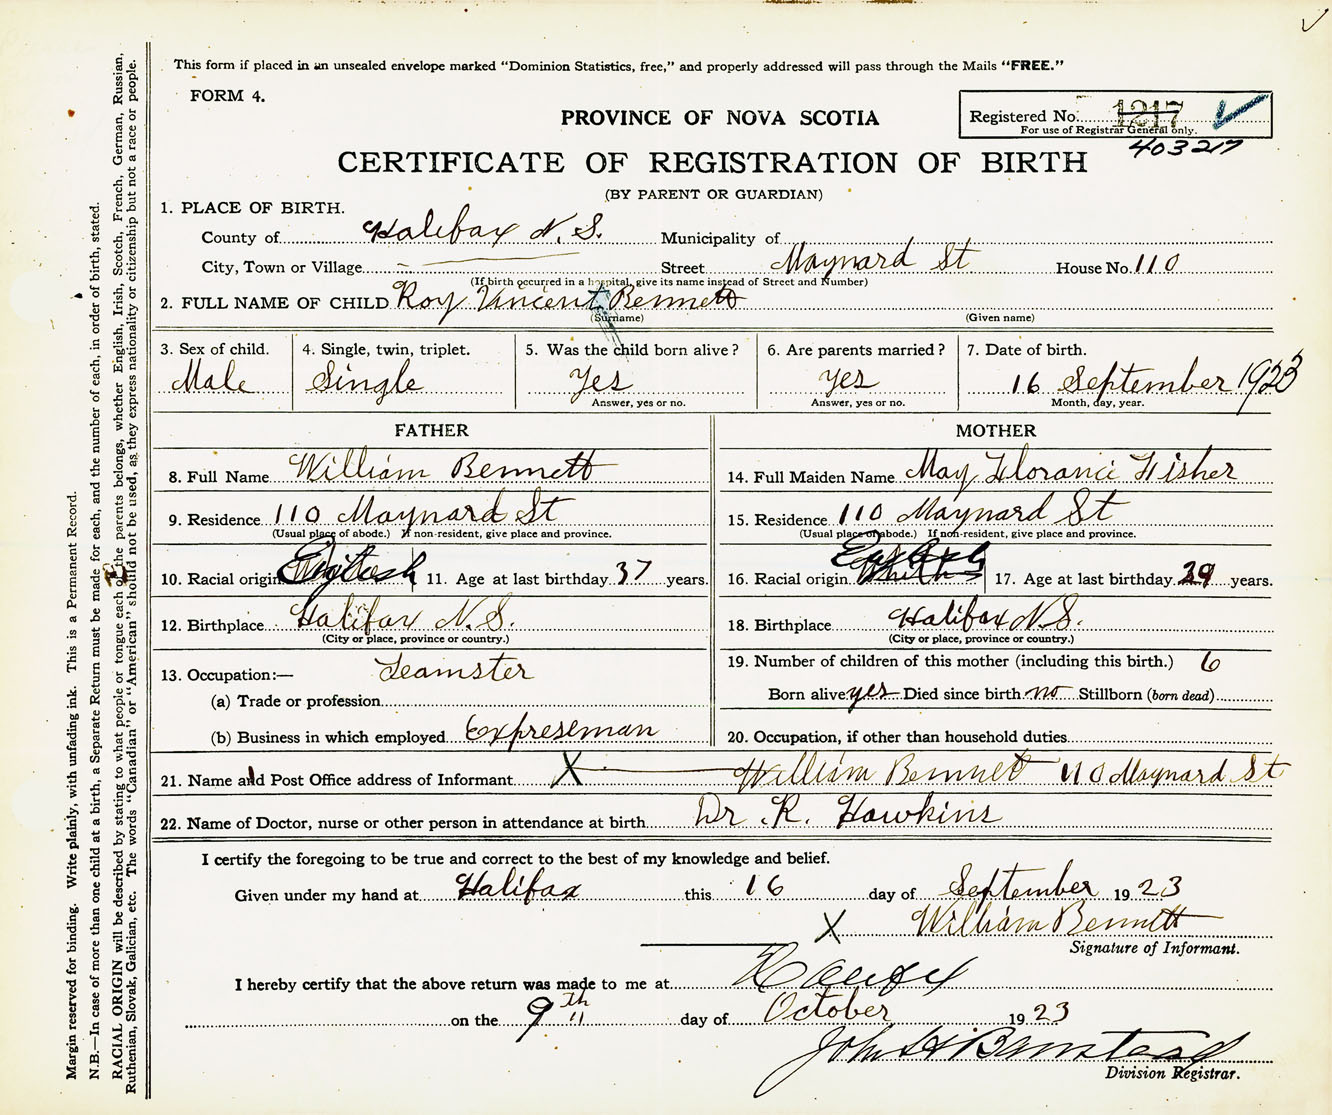 This form if placed in an unsealed envelope marked "Dominion Statistics, free," and properly addressed will pass through the Mails "FREE."
FORM 4.
PROVINCE OF NOVA SCOTIA
Registered No. 1217
For use of Registrar General only.
403217
CERTIFICATE OF REGISTRATION OF BIRTH
(BY PARENT OR GUARDIAN)
1. PLACE OF BIRTH.
County of Halifax N.S. Municipality of
City, Town or Village Street Maynard St House No. 110
(If birth occurred in a hospital, give its name instead of Street and Number)
2. FULL NAME OF CHILD Roy Vincent Bennett
(Surname) (Given name)
3. Sex of child. 4. Single, twin, triplet. 5. Was the child born alive? 6. Are parents married? 7. Date of birth.
Male Single Yes Yes 16 September 1923
Answer, yes or no. Answer, yes or no. Month, day, year.
FATHER MOTHER
8. Full Name William Bennett 14. Full Maiden Name May Florance Fisher
9. Residence 110 Maynard St 15. Residence 110 Maynard St
(Usual place of abode.) If non-resident, give place and province. (Usual place of abode.) If non-resident, give place and province.
10. Racial origin English 11. Age at last birthday 37 years. 16. Racial origin 17. Age at last birthday 29 years.
12. Birthplace Halifax N.S. 18. Birthplace Halifax N.S.
(City or place, province or country.) (City or place, province or country.)
13. Occupation:— Teamster 19. Number of children of this mother (including this birth.) 6
(a) Trade or profession Born alive yes Died since birth no Stillborn (born dead)
(b) Business in which employed Expreseman 20. Occupation, if other than household duties
21. Name and Post Office address of Informant X William Bennett 110 Maynard St
22. Name of Doctor, nurse or other person in attendance at birth Dr. R. Hawkins
I certify the foregoing to be true and correct to the best of my knowledge and belief.
Given under my hand at Halifax this 16 day of September 1923
X William Bennett
Signature of Informant.
I hereby certify that the above return was made to me at Halifax
on the 9th day of October 1923
Division Registrar.
Margin reserved for binding. Write plainly, with unfading ink. This is a Permanent Record.
N.B.—In case of more than one child at a birth, a Separate Return must be made for each, and the number of each, in order of birth, stated.
RACIAL ORIGIN will be described by stating to what people or tongue each of the parents belongs, whether English, Irish, Scotch, French, German, Russian,
Ruthenian, Slovak, Galician, etc. The words "Canadian" or "American" should not be used, as they express nationality or citizenship but not a race or people.